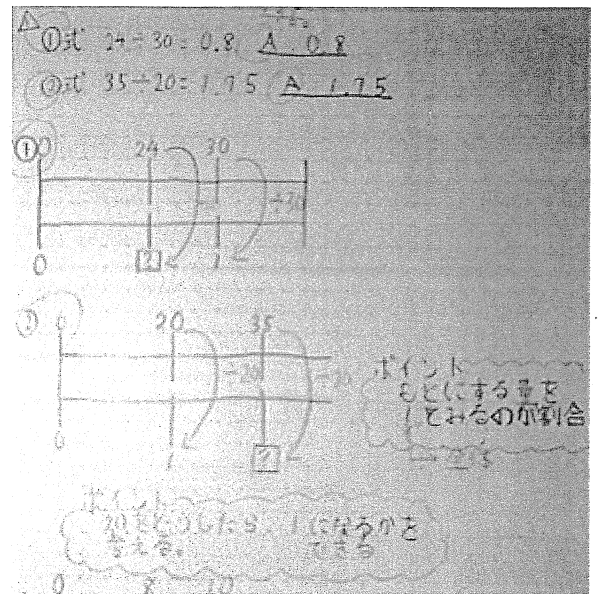 ①式 24÷30=0.8 A 0.8
②式 35÷20=1.75 A 1.75
① 0 24 30
÷30
0 ? 1
② 0 20 35
÷20 ÷20
0 1 ?
ポイント
もとにする量を
1とみるのが割合
ポイント
20をどうしたら、1になるかを
考える。
0 8 10